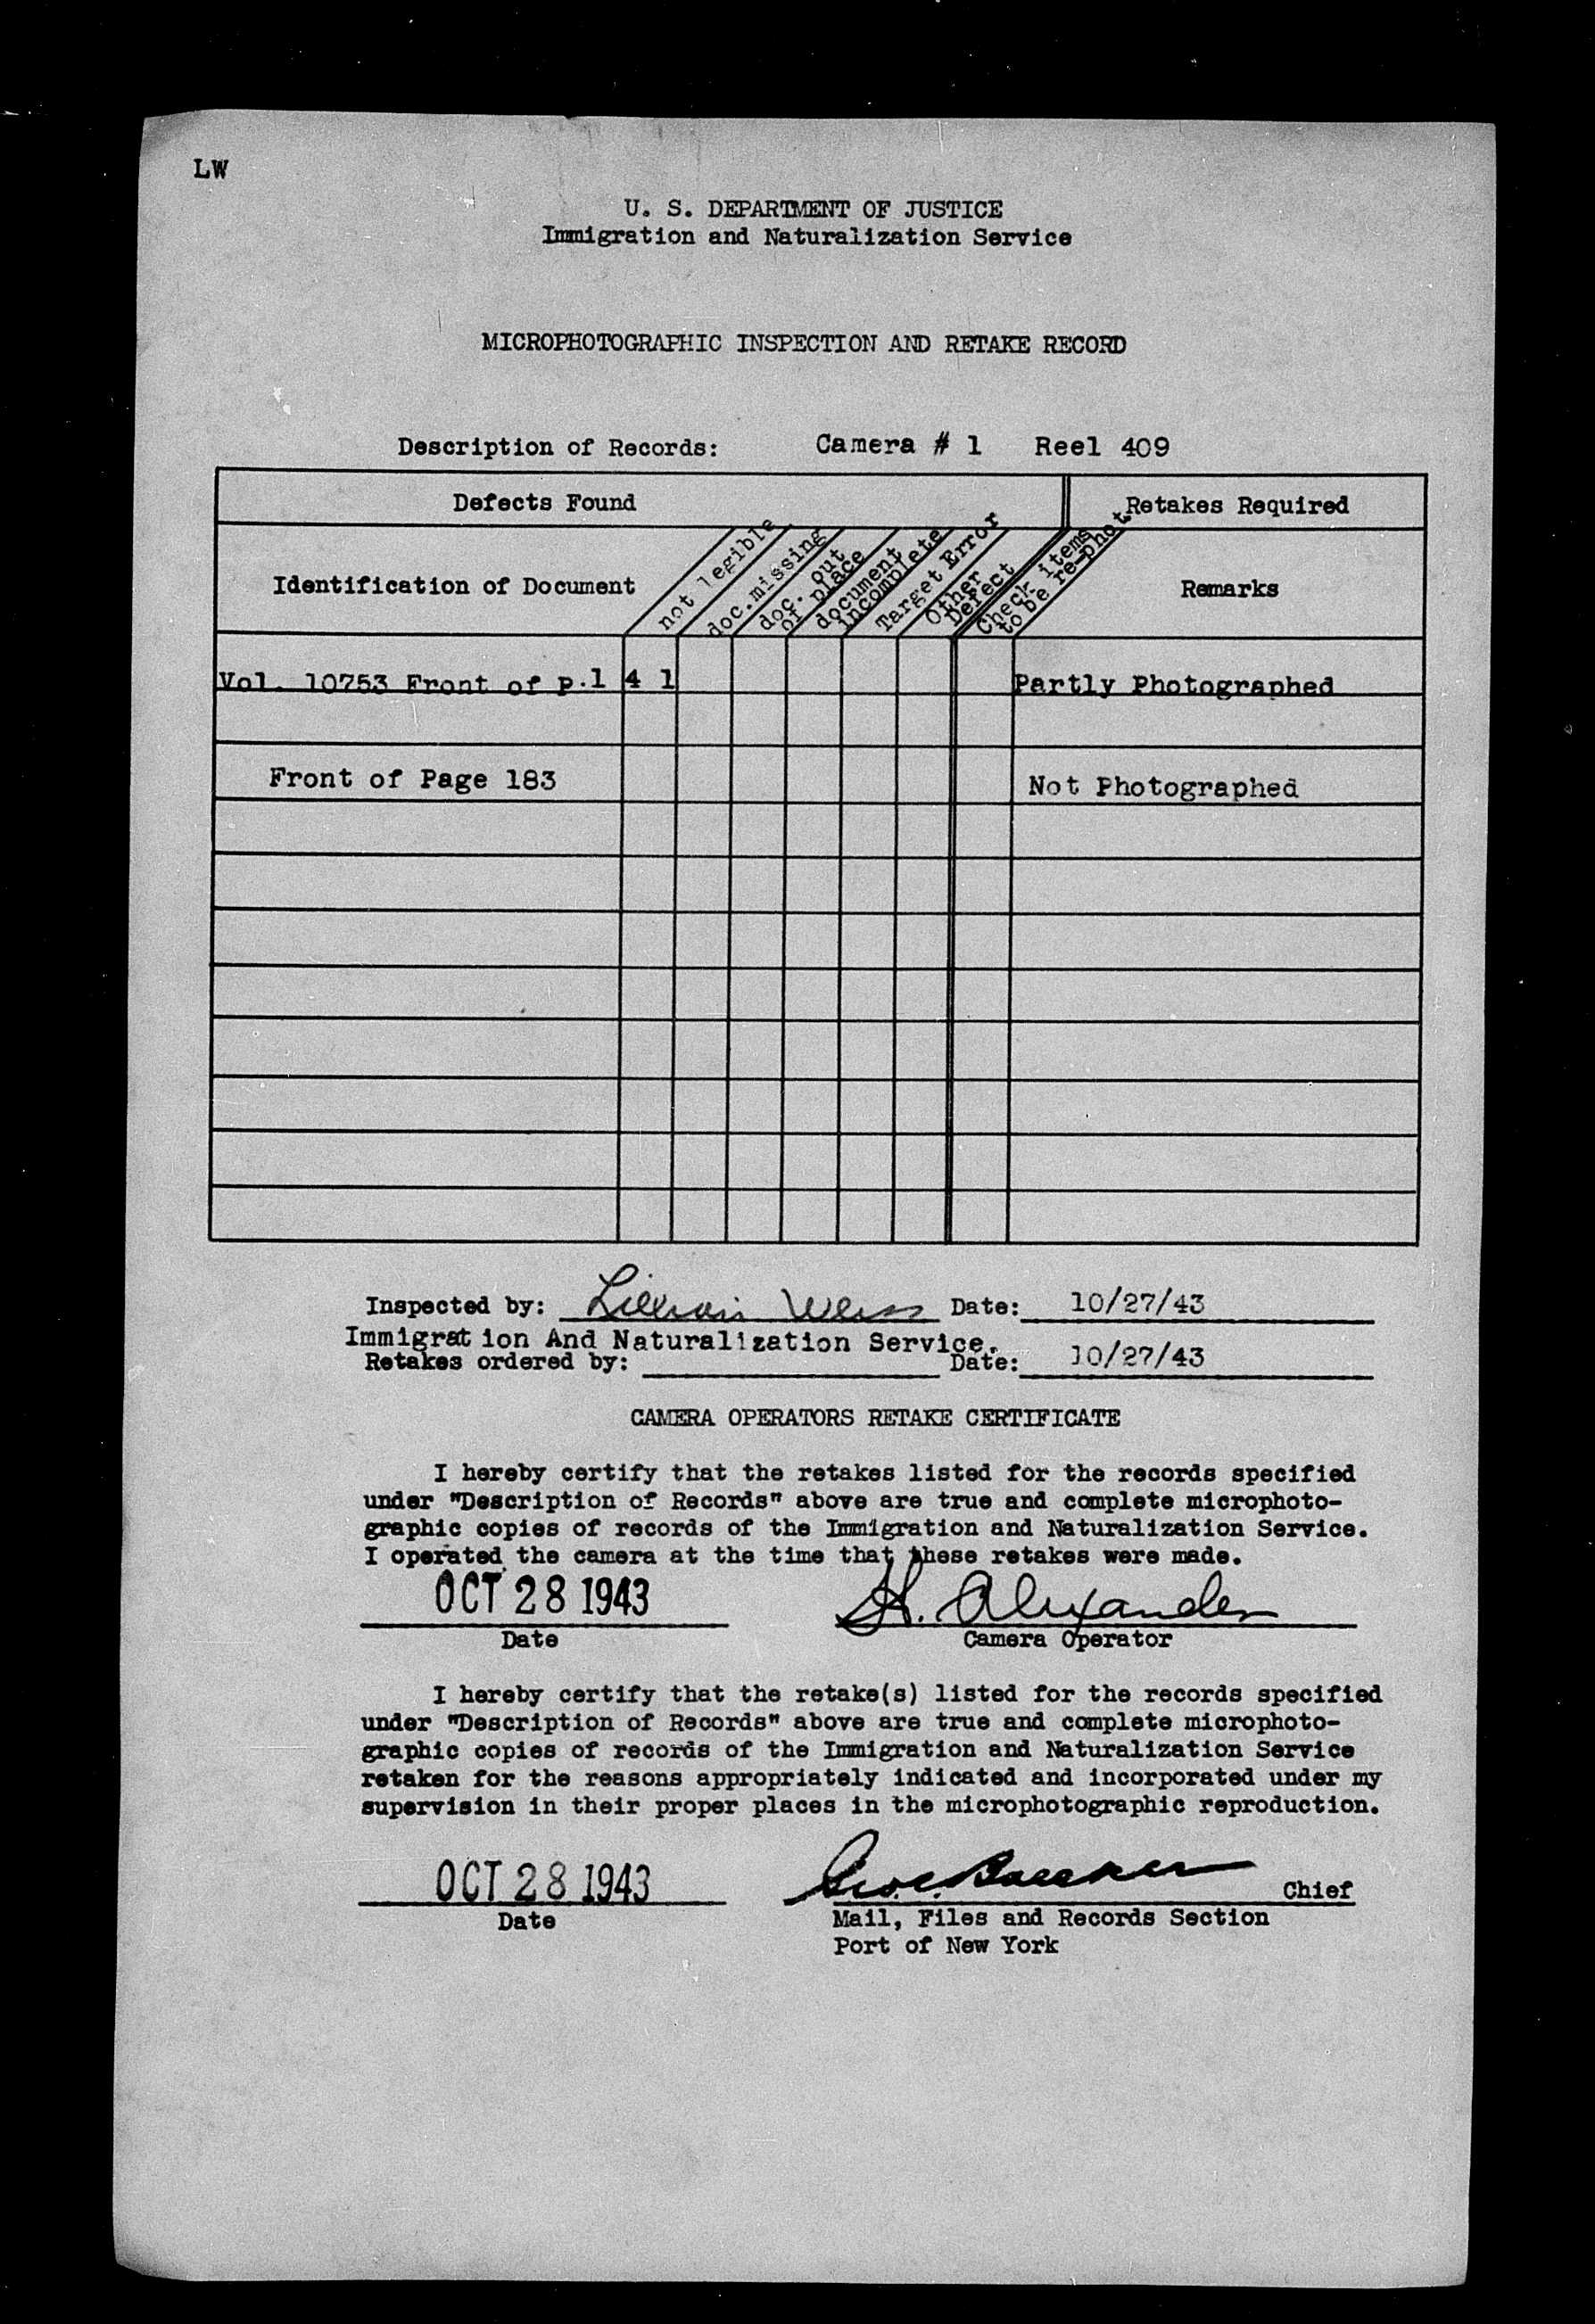 LW
U. S. DEPARTMENT OF JUSTICE
Immigration and Naturalization Service
MICROPHOTOGRAPHIC INSPECTION AND RETAKE RECORD
Description of Records: Camera # 1 Reel 409
Defects Found Retakes Required
Identification of Document
not legible
doc.missing
doc. out
of place
document
incomplete
Target Error
Other
Defect
Check items
to be re-phot.
Remarks
Vol. 10753 Front of p.1 4 1 Partly Photographed
Front of Page 183 Not Photographed
Inspected by: Lillian Weiss Date: 10/27/43
Immigration And Naturalization Service.
Retakes ordered by: Date: 10/27/43
CAMERA OPERATORS RETAKE CERTIFICATE
I hereby certify that the retakes listed for the records specified
under "Description of Records" above are true and complete microphoto-
graphic copies of records of the Immigration and Naturalization Service.
I operated the camera at the time that these retakes were made.
OCT 28 1943 H. Alexander
Date Camera Operator
I hereby certify that the retake(s) listed for the records specified
under "Description of Records" above are true and complete microphoto-
graphic copies of records of the Immigration and Naturalization Service
retaken for the reasons appropriately indicated and incorporated under my
supervision in their proper places in the microphotographic reproduction.
OCT 28 1943 Chief
Date Mail, Files and Records Section
Port of New York